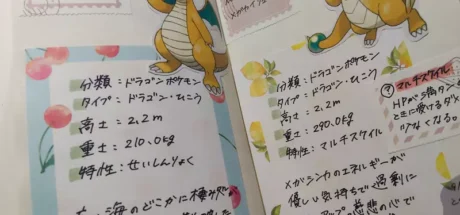 分類：ドラゴンポケモン
タイプ：ドラゴン・ひこう
高さ：2.2m
重さ：210.0kg
特性：せいしんりょく
海のどこかに棲み
分類：ドラゴンポケモン
タイプ：ドラゴン・ひこう
高さ：2.2m
重さ：290.0kg
特性：マルチスケイル
メガシンカのエネルギーが
優しい気持ちで過剰に
慈悲の心で
マルチスケイル
HPが満タン
ときに受けるダメ
少なくなる。